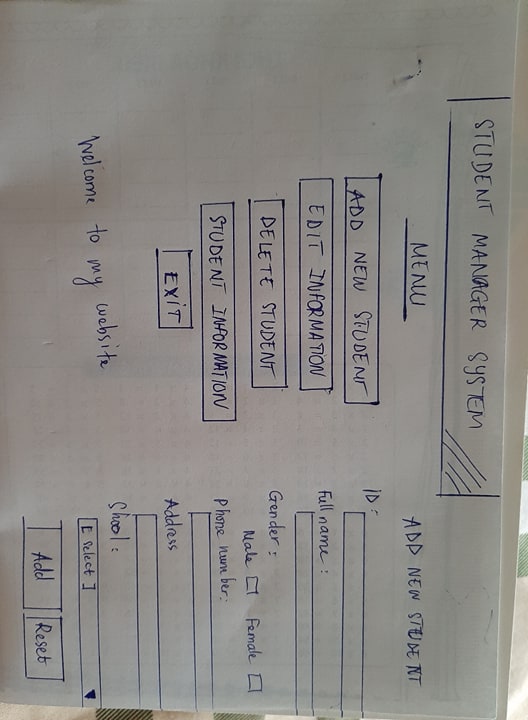 STUDENT MANAGER SYSTEM
MENU
ADD NEW STUDENT
EDIT INFORMATION
DELETE STUDENT
STUDENT INFORMATION
EXIT
Welcome to my website
ADD NEW STUDENT
ID:
Full name:
Gender:
Male Female
Phone number:
Address
Shool:
[ Select ]
Add Reset